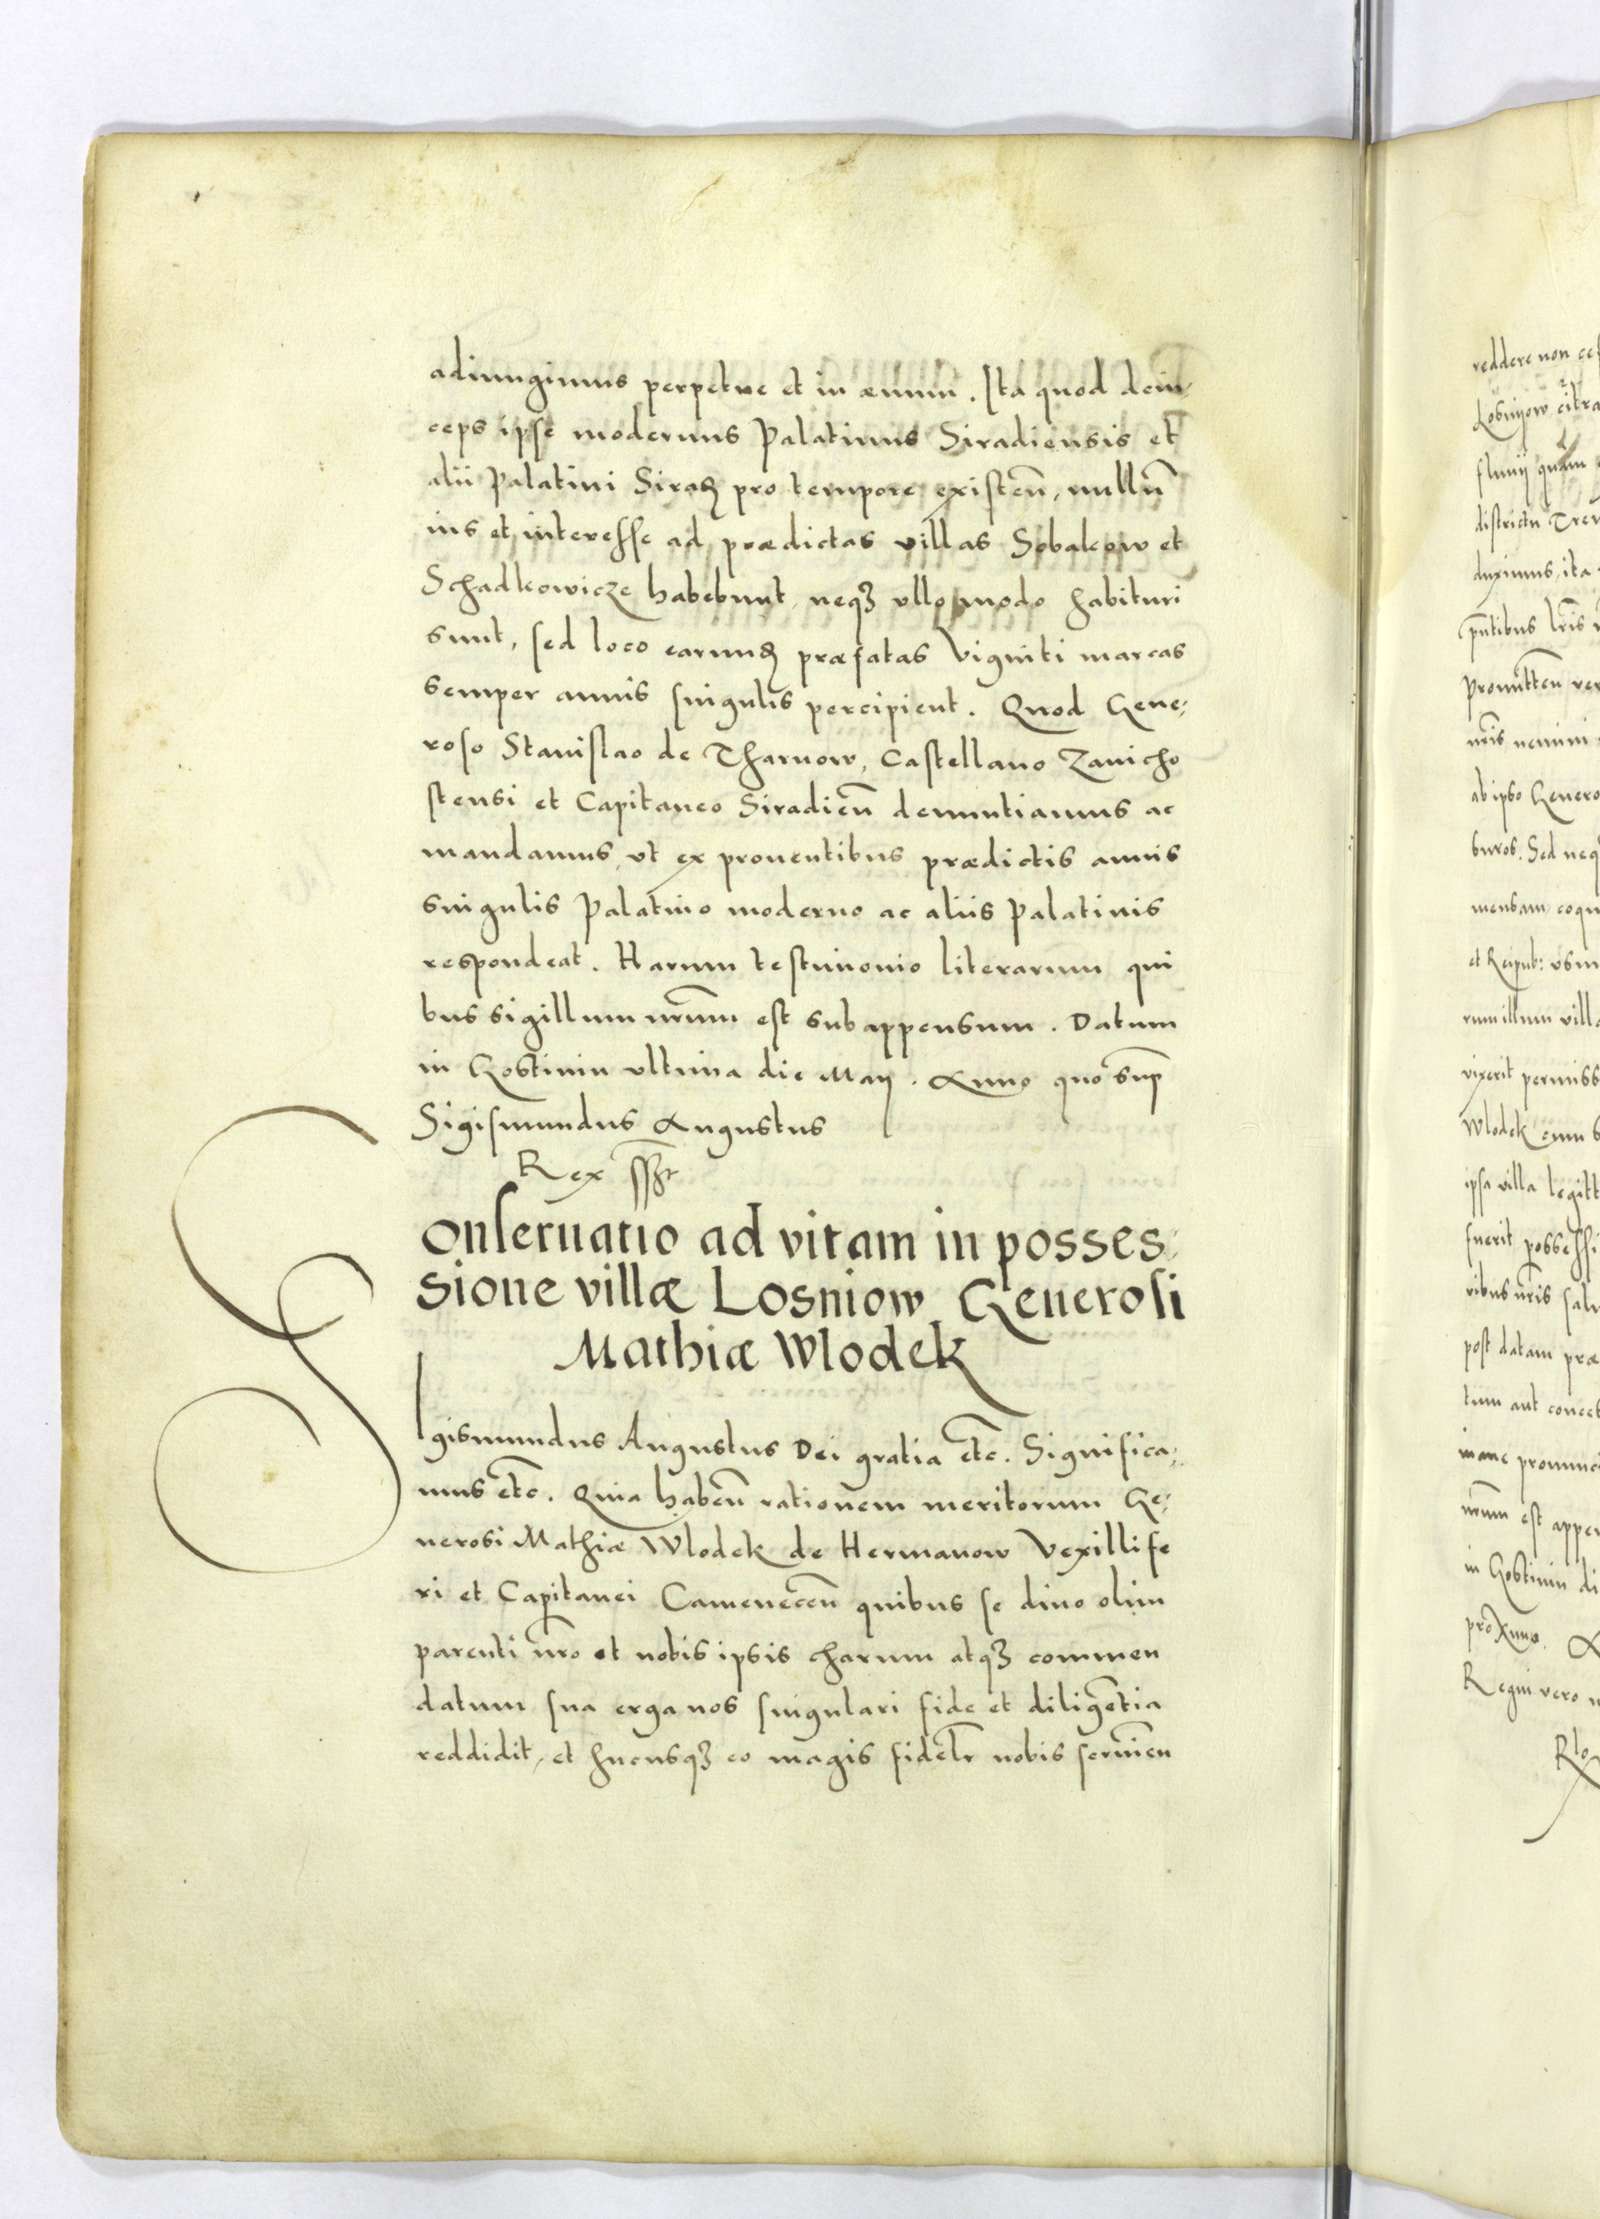 adiungimus perpetue et in æuum. Ita quod dein-
ceps ipse modernus Palatinus Siradiensis et
alii Palatini Siradꝫ pro tempore existeñ, nullũ
ius et interesse ad prædictas villas Sobakow et
Schadkowicze habebunt, neqꝫ vllo modo habituri
sunt, sed loco earundꝫ præfatas viginti marcas
semper annis singulis percipient. Quod Gene-
roso Stanislao de Tharnow, Castellano Zauicho
stensi et Capitaneo Siradieñ denuntiamus ac
mandamus, vt ex prouentibus prædictis annis
singulis Palatino moderno ac aliis Palatinis
respondeat. Harum testimonio literarum qui
bus sigillum nr̃um est subappensum. Datum
in Gostinin vltima die Maij. Anno quo sup̃
Sigismundus Augustus
Rex sst
Conseruatio ad vitam in posses-
sione villæ Losniow Generosi
Mathiæ Wlodek
Sigismundus Augustus Dei gratia etc̃. Significa-
mus etc̃. Quia habeñ rationem meritorum Ge-
nerosi Mathiæ Wlodek de Hermanow Vexillife
ri et Capitanei Cameneceñ quibus se diuo olim
parenti nr̃o et nobis ipsis charum atqꝫ commen
datum sua erga nos singulari fide et diligẽtia
reddidit, et hucusqꝫ eo magis fidelr̃ nobis seruien
reddere non ces
Losnyow citra
fluuij quam
districtu Trem
duximus, ita
pñtibus lr̃is
Promitteñ
nr̃is nemini
ab ipso Genero
buros. Sed neqꝫ
mensam, coqu
et Reipub: vsu
rum illum villa
vixerit permiss
Wlodek cum
ipsa villa legitt
fuerit possessi
ribus nr̃is salu
post datam præ
tum aut concess
inane pronunc
nr̃um est appen
in Gostinin di
Regni vero n